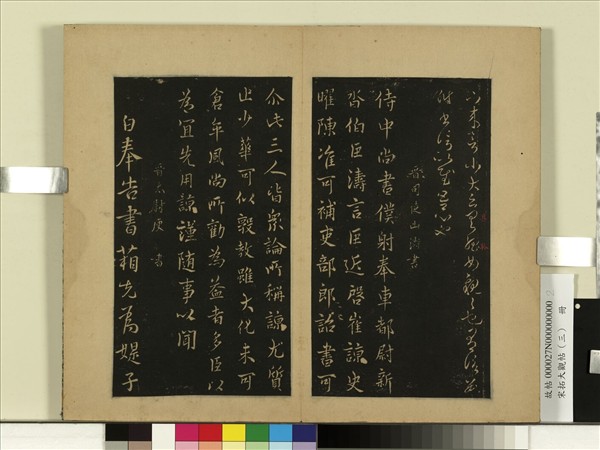 晉司徒山濤書
侍中尚書僕射奉車都尉新
沓伯臣濤言臣近啓崔諒史
曜陳准可補吏部郎詔書可
尒此三人皆衆論所稱諒尤質
止少華可以敦教雖大化未可
倉卒風尚所勸為益者多臣以
為宜先用諒謹隨事以聞
晉太尉庾 書
白奉告書箱先為媞子
故帖 000027N000000000 2
宋拓大觀帖（三） 冊